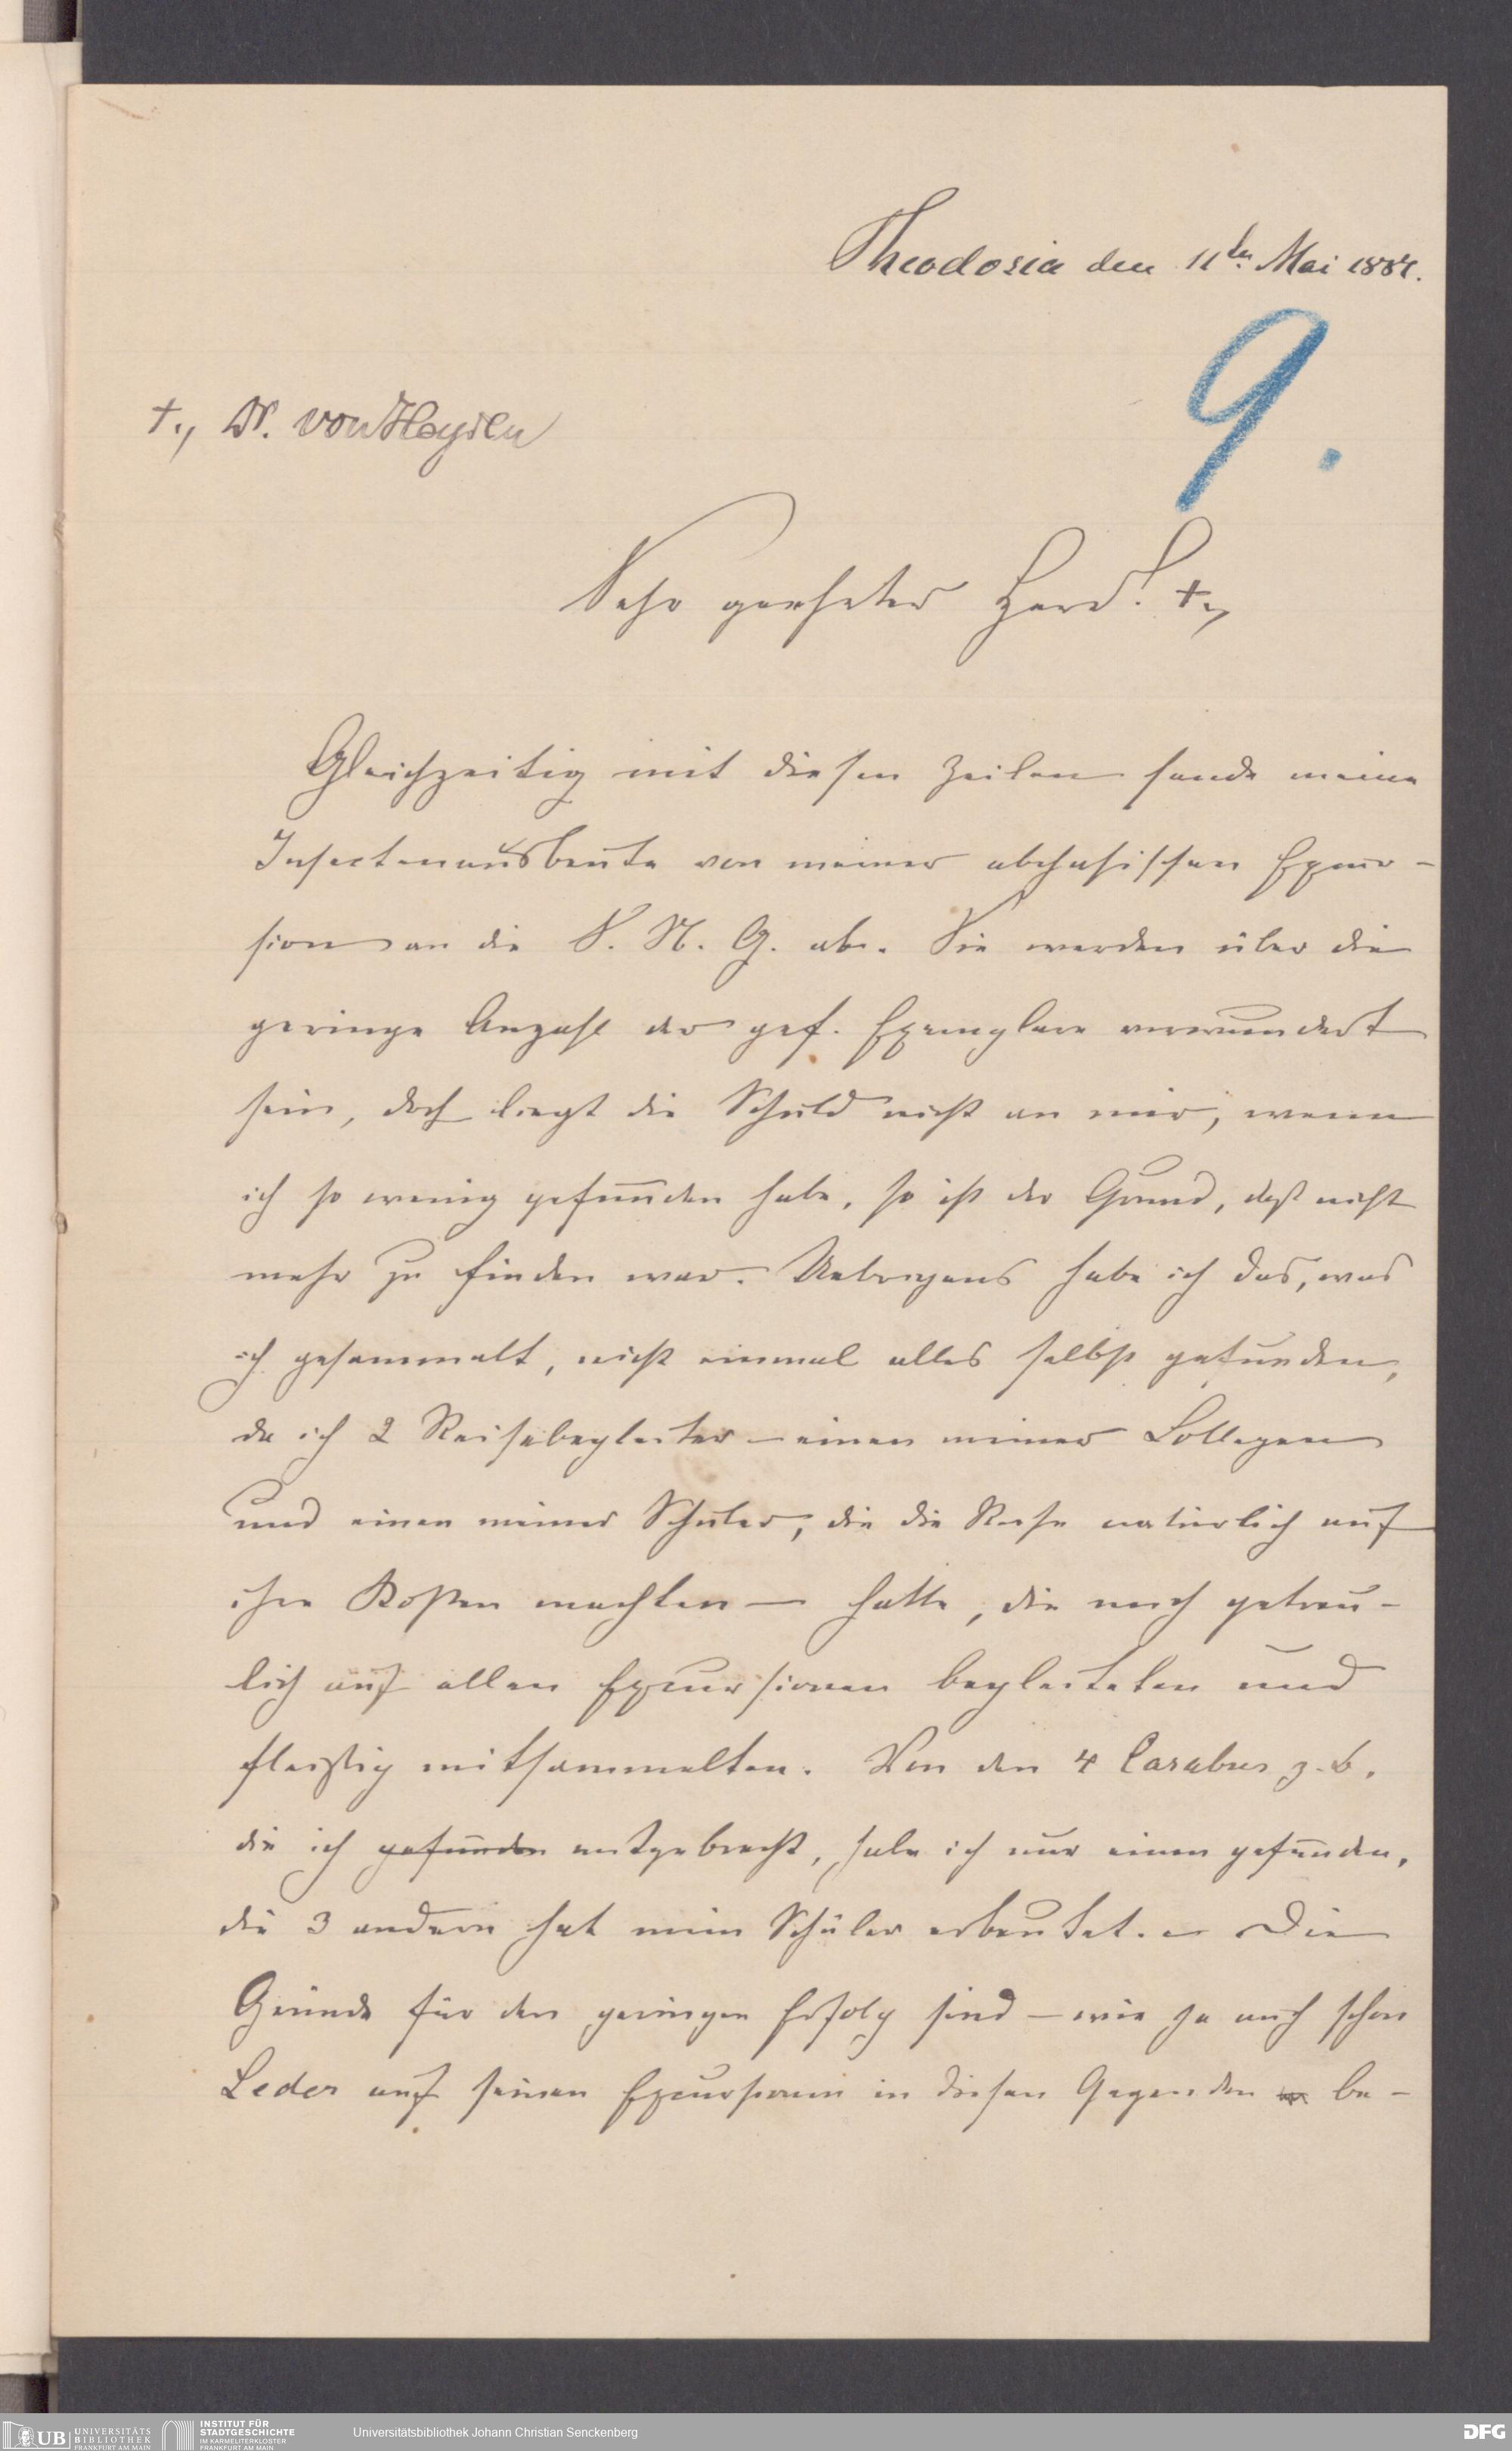 Theodosia den 11ten Mai 1887.
9.
†., Dr. von Heyden
Sehr geehrter Herr! †.,
Gleichzeitig mit diesen Zeilen sende meine
Insectenausbeute von meiner abchasischen Excur-
sion an die S. N. G. ab. Sie werden über die
geringe Anzahl der gef. Exemplare verwundert
sein, doch liegt die Schuld nicht an mir, wenn
ich so wenig gefunden habe, so ist der Grund, daß nicht
mehr zu finden war. Uebrigens habe ich das, was
ich gesammelt, nicht einmal alles selbst gefunden,
da ich 2 Reisebegleiter – einen meiner Collegen
und einen meiner Schüler, die die Reise natürlich auf
ihre Kosten machten – hatte, die mich getreu-
lich auf allen Excursionen begleiteten und
fleißig mitsammelten. Von den 4 Carabus z. B.
die ich gefunden mitgebracht, habe ich nur einen gefunden,
die 3 andern hat mein Schüler erbeutet. – Die
Gründe für den geringen Erfolg sind – wie ja auch schon
Leder auf seinen Excursionen in diesen Gegenden be-
UB UNIVERSITÄTS
BIBLIOTHEK
FRANKFURT AM MAIN
INSTITUT FÜR
STADTGESCHICHTE
IM KARMELITERKLOSTER
FRANKFURT AM MAIN
Universitätsbibliothek Johann Christian Senckenberg
DFG